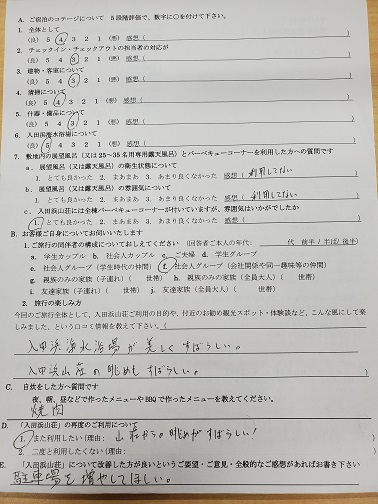 A. ご宿泊のコテージについて 5段階評価で、数字に○を付けて下さい。
1. 全体として
(良) 5 4 3 2 1 (悪) 感想 ( )
2. チェックイン・チェックアウトの担当者の対応が
(良) 5 4 3 2 1 (悪) 感想 ( )
3. 建物・客室について
(良) 5 4 3 2 1 (悪) 感想 ( )
4. 清掃について
(良) 5 4 3 2 1 (悪) 感想 ( )
5. 什器・備品について
(良) 5 4 3 2 1 (悪) 感想 ( )
6. 入田浜海水浴場について
(良) 5 4 3 2 1 (悪) 感想 ( )
7. 敷地内の展望風呂(又は25~35名用専用露天風呂)とバーベキューコーナーを利用した方へ質問です
a. 展望風呂(又は露天風呂)の衛生状態について
1. とても良かった 2. まあまあ 3. あまり良くなかった 感想(利用してない )
b. 展望風呂(又は露天風呂)の雰囲気について
1. とても良かった 2. まあまあ 3. あまり良くなかった 感想( 利用してない )
c. 入田浜山荘には全棟バーベキューコーナーが付いていますが、雰囲気はいかがでしたか
1. とても良かった 2. まあまあ 3. あまり良くなかった 感想( )
B. お客様ご自身についてお伺いいたします
1. ご旅行の同伴者の構成についておしえてください (回答者ご本人の年代: 代 前半/半ば/後半)
a. 学生カップル b. 社会人カップル c. ご夫婦 d. 学生グループ
e. 社会人グループ(学生時代の仲間) f. 社会人グループ(会社関係や同一趣味等の仲間)
g. 親族のみの家族(子連れ)( 世帯) h. 親族のみの家族(全員大人)( 世帯)
i. 友達家族(子連れ)( 世帯) j. 友達家族(全員大人)( 世帯)
2. 旅行の楽しみ方
今回のご旅行全体として、入田浜山荘ご利用の目的や、付近のお勧め観光スポット・体験談など、こんな風にして楽
しみました、という口コミ情報を教えて下さい。( )
入田浜海水浴場が美しくすばらしい。
入田浜山荘の眺めもすばらしい。
C. 自炊をした方へ質問です
夜、朝、昼などで作ったメニューやBBQで作ったメニューを教えてください。
焼肉
D. 「入田浜山荘」の再度のご利用について
1. また利用したい(理由: 山荘からの眺めがすばらしい! )
2. 二度と利用したくない(理由: )
E. 「入田浜山荘」について改善した方が良いというご要望・ご意見・全般的なご感想があればお書き下さい
駐車場を増やしてほしい。